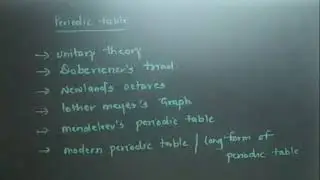 Periodic table
→ unitary theory
→ Dobereiner's triad
→ Newland's octaves
→ lother meyer's Graph
→ mendeleev's periodic table
→ modern periodic table / long form of
periodic table